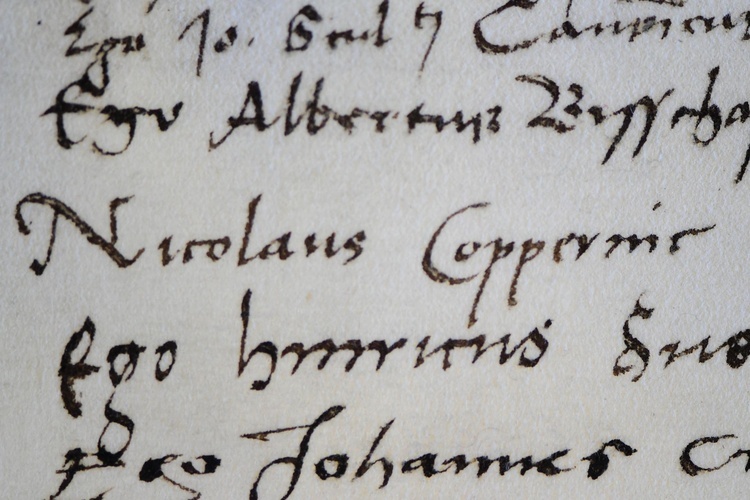 Ego Jo. Scul
Ego Albertus Bissch
Nicolaus Coppernic
Ego hinricus
Ego Johannes